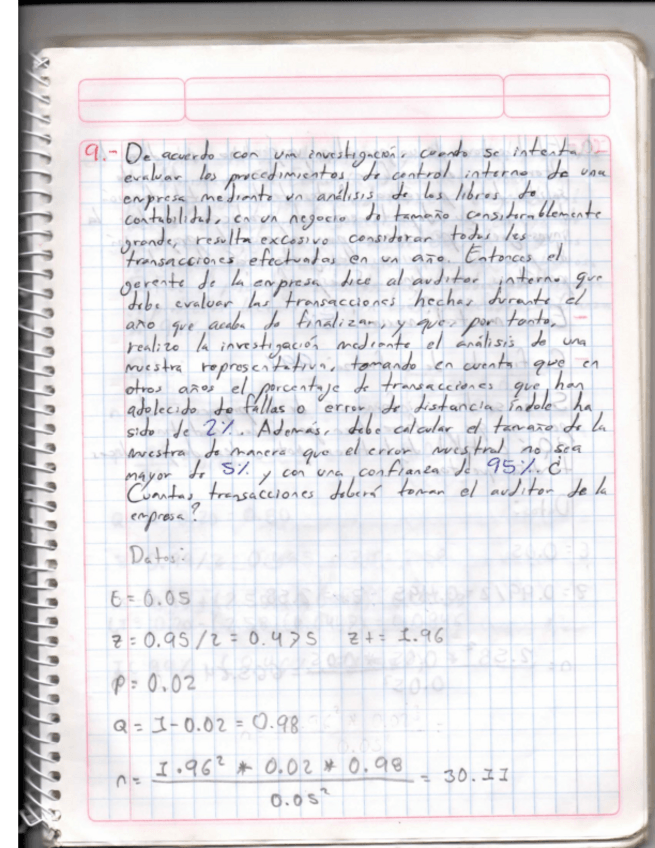 9.- De acuerdo con una investigación, cuando se intenta
evaluar los procedimientos de control interno de una
empresa mediante un análisis de los libros de
contabilidad, en un negocio de tamaño considerablemente
grande, resulta excesivo considerar todas las
transacciones efectuadas en un año. Entonces el
gerente de la empresa dice al auditor interno que
debe evaluar las transacciones hechas durante el
año que acaba de finalizar, y que, por tanto,
realizo la investigación mediante el análisis de una
muestra representativa, tomando en cuenta que en
otros años el porcentaje de transacciones que han
adolecido de fallas o error de distancia índole ha
sido de 2%. Además, debe calcular el tamaño de la
muestra de manera que el error muestral no sea
mayor de 5% y con una confianza de 95%. ¿
Cuantas transacciones deberá toman el auditor de la
empresa?
Datos:
E=0.05
Z=0.95/2=0.475 Z+= 1.96
P=0.02
Q= 1-0.02=0.98
n= 1.96² * 0.02 * 0.98 = 30.11
0.05²